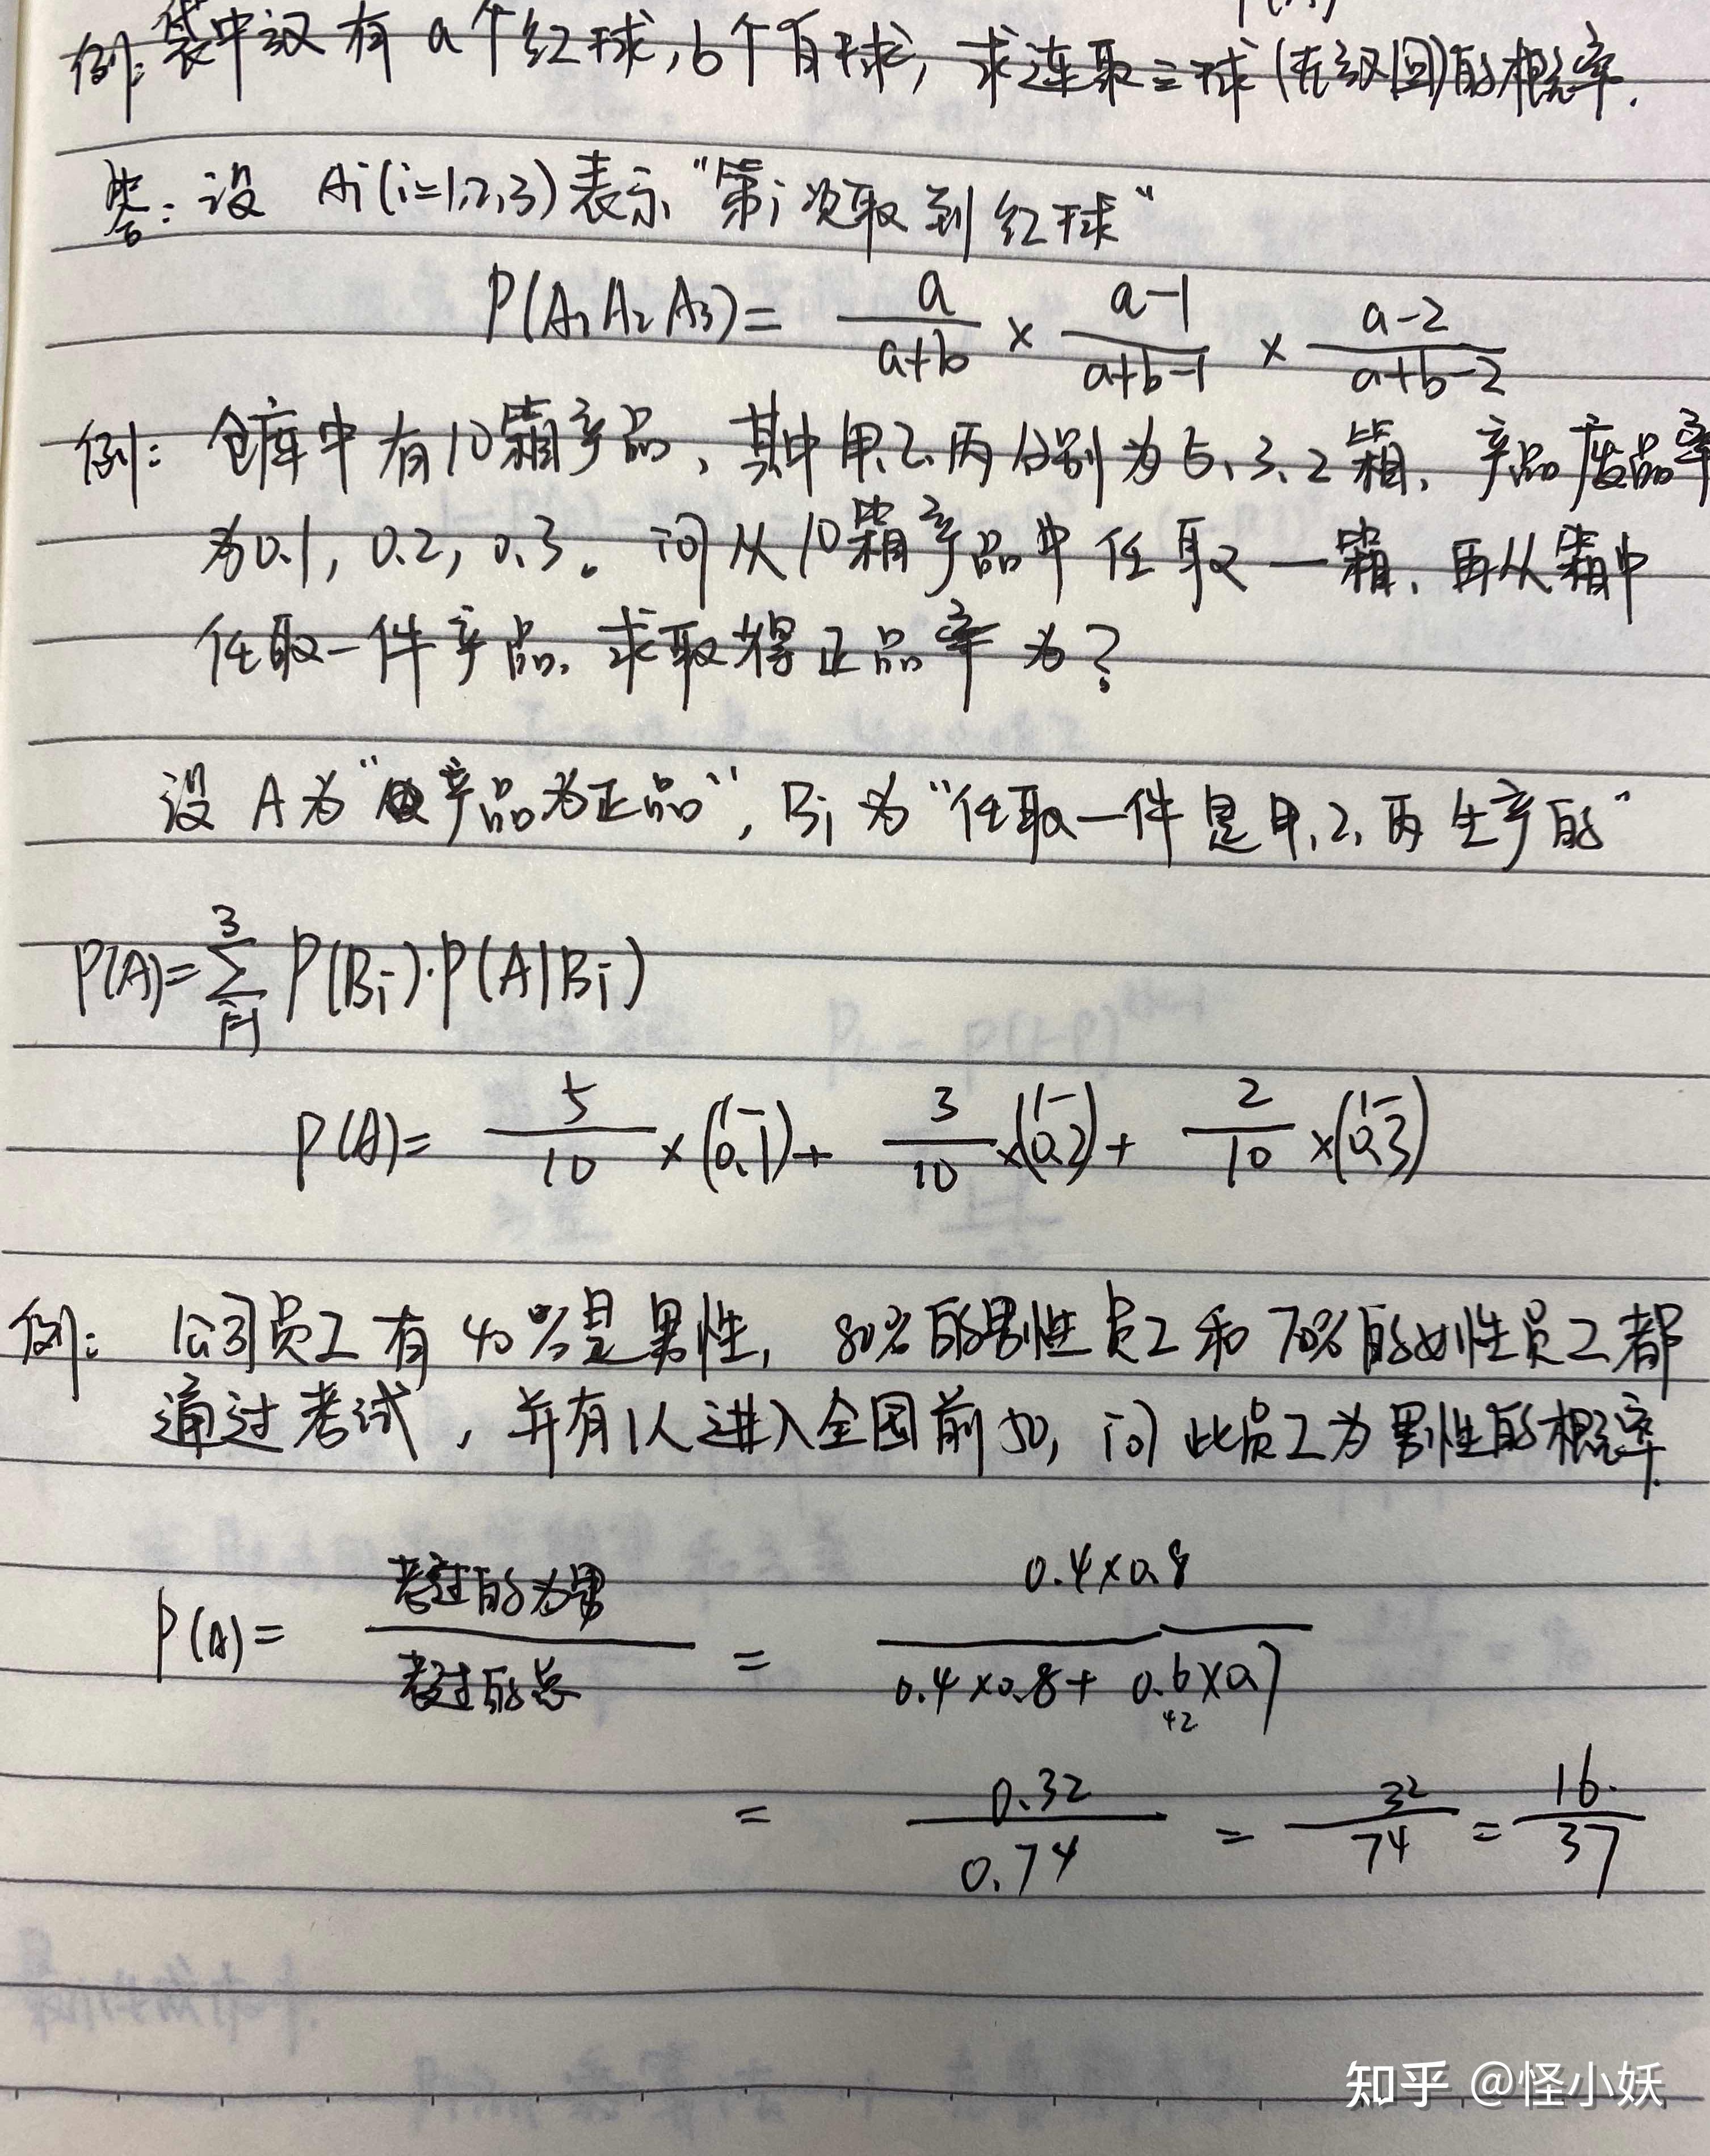 例: 袋中放有a个红球,b个白球, 求连取三球(无放回)的概率.
答: 设 Ai(i=1,2,3)表示"第i次取到红球"
P(A₁A₂A₃)= a/(a+b) × (a-1)/(a+b-1) × (a-2)/(a+b-2)
例: 仓库中有10箱产品, 其中甲.乙.丙分别为5、3、2箱, 产品废品率
为0.1, 0.2, 0.3。问从10箱产品中任取一箱, 再从箱中
任取一件产品, 求取得正品率为?
设 A为"产品为正品", Bi为"任取一件是甲,乙,丙生产的"
P(A)=∑_{i=1}^{3} P(Bi)·P(A|Bi)
P(A)= 5/10 ×(1-0.1)+ 3/10 ×(1-0.2)+ 2/10 ×(1-0.3)
例: 公司员工有40%是男性, 80%的男性员工和70%的女性员工都
通过考试, 并有1人进入全国前50, 问此员工为男性的概率.
P(A)= 考过的为男/考过的总 = 0.4×0.8/(0.4×0.8+0.6×0.7)
42
= 0.32/0.74 = 32/74 = 16/37
知乎 @怪小妖